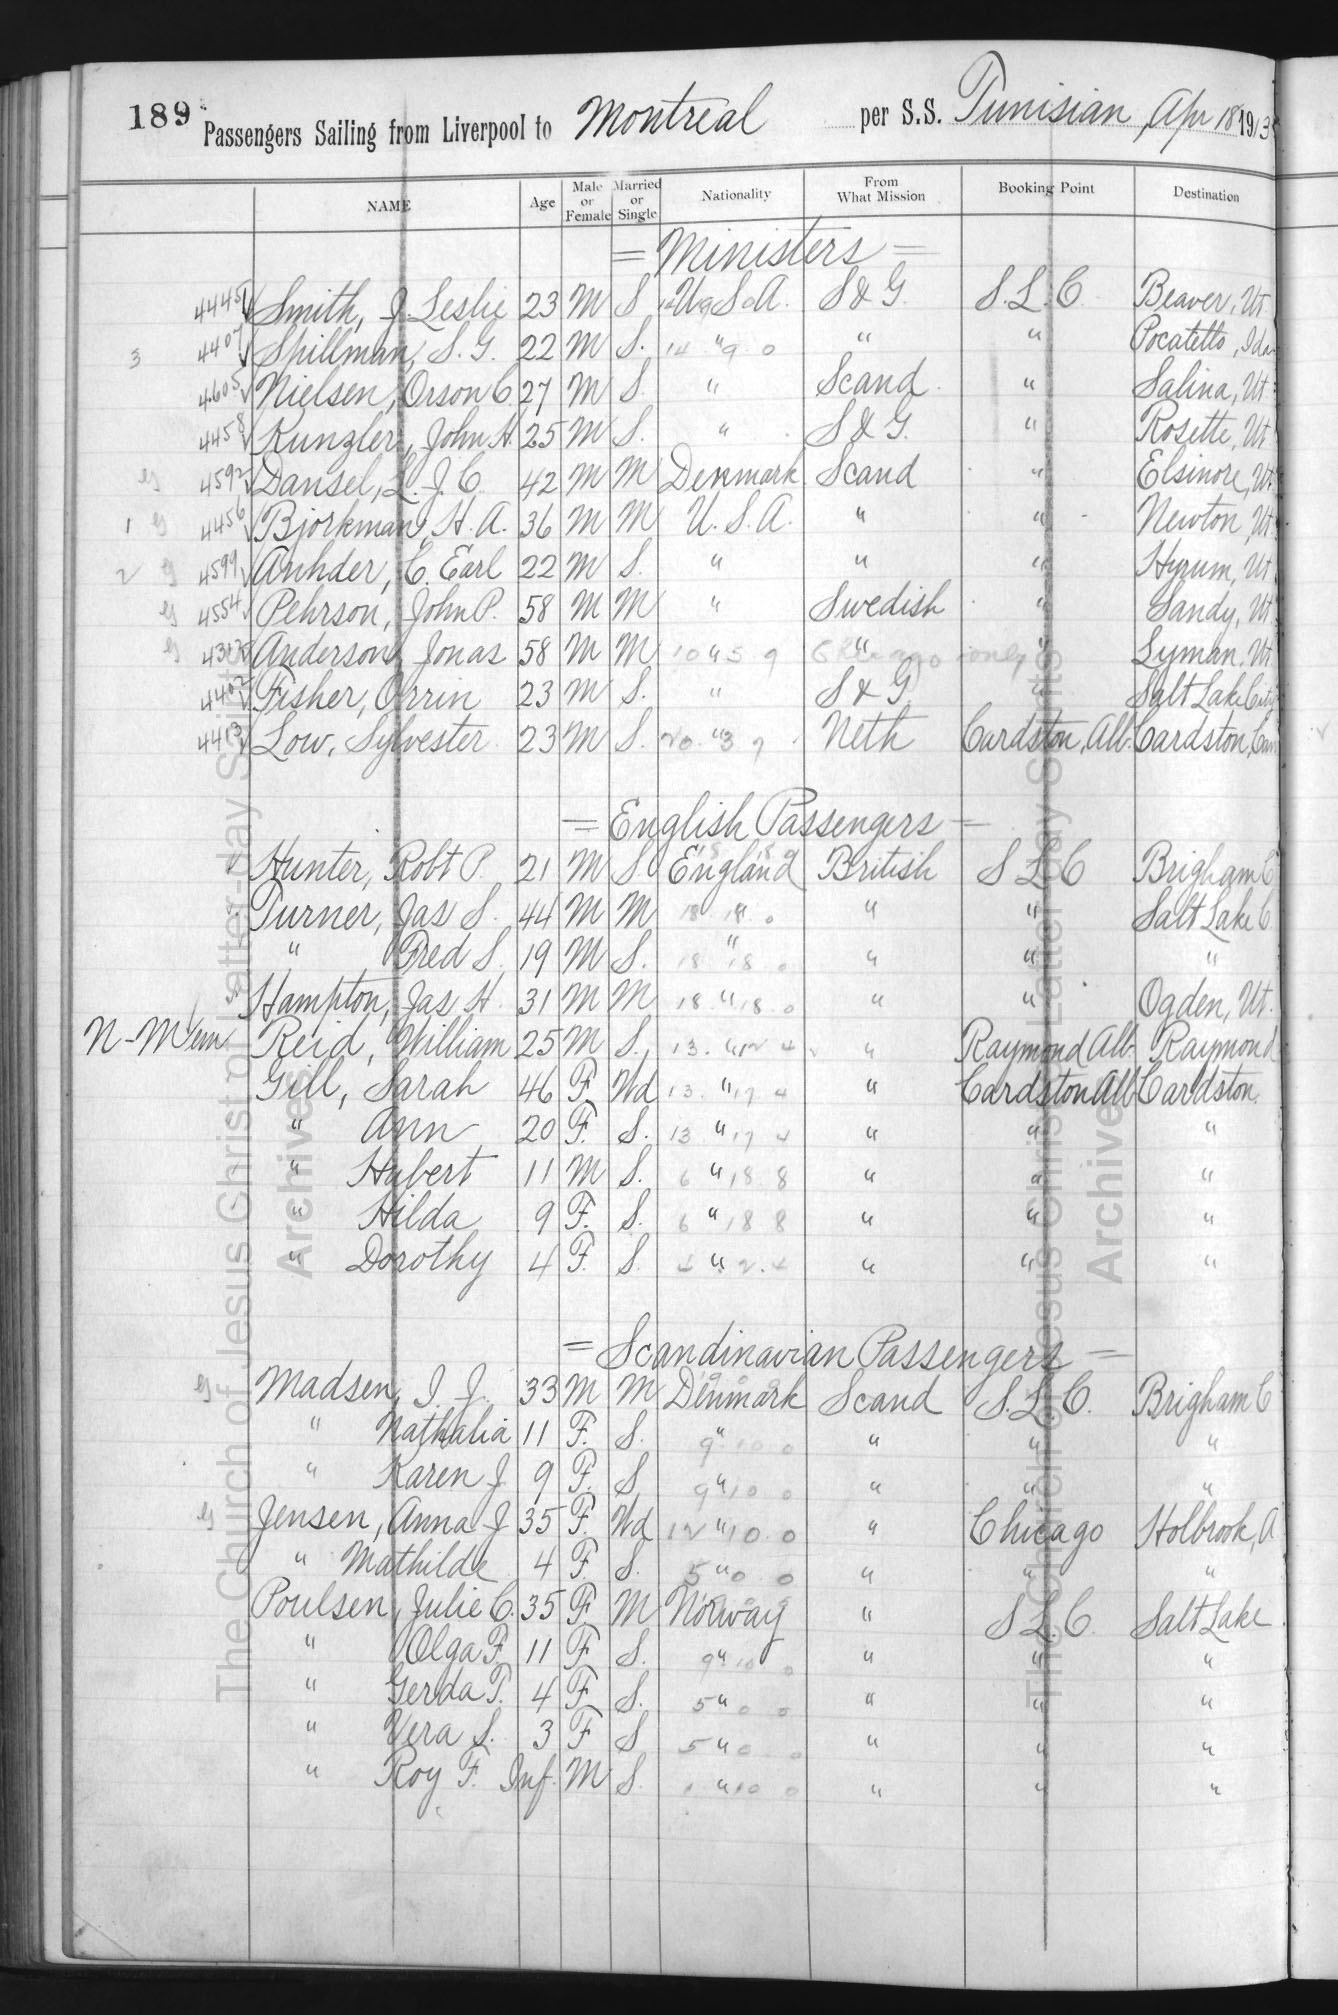 189 Passengers Sailing from Liverpool to Montreal per S.S. Tunisian, Apr 18 1913
NAME Age Male or Female Married or Single Nationality From What Mission Booking Point Destination
= Ministers =
4445 Smith, J. Leslie 23 M S U.S.A. S & G S.L.C. Beaver, Ut
3 4407 Spillman, S. G. 22 M S. 14 " 9 0 " " Pocatello, Ida
4605 Nielsen, Orson C. 27 M S. " Scand. " Salina, Ut
4458 Kunzler, John H. 25 M S. " S & G. " Rosette, Ut
4592 Dansel, L. J. C. 42 M M Denmark Scand " Elsinore, Ut.
1 4456 Bjorkman, H. A. 36 M M U.S.A. " " Newton, Ut.
2 4599 Anhder, E. Earl 22 M S. " " " Hyrum, Ut.
4554 Pehrson, John P. 58 M M " Swedish " Sandy, Ut.
Anderson, Jonas 58 M M 10 " 5 9 " Chicago only " Lyman, Ut
4402 Fisher, Orrin 23 M S. " S & G " Salt Lake City
4413 Low, Sylvester 23 M S. 20 " 3 9 Neth Cardston, Alb. Cardston, Can
= English Passengers =
Hunter, Robt P. 21 M S. England British S L C Brigham C
Turner, Jas S. 44 M M 18 " 18 0 " " Salt Lake C.
" Fred S. 19 M S. 18 " 18 0 " " "
Hampton, Jas H. 31 M M 18 " 18 0 " " Ogden, Ut.
N-Mem Reid, William 25 M S. 13 " 12 4 " Raymond Alb. Raymond
Gill, Sarah 46 F. Wd 13 " 17 4 " Cardston Alb Cardston.
" Ann 20 F. S. 13 " 17 4 " " "
" Hubert 11 M S. 6 " 18 8 " " "
" Hilda 9 F. S. 6 " 18 8 " " "
" Dorothy 4 F. S. 4 " 2 4 " " "
= Scandinavian Passengers =
Madsen, I. J. 33 M M Denmark Scand S.L.C. Brigham C
" Nathalia 11 F. S. 9 " 10 0 " " "
" Karen J 9 F. S. 9 " 10 0 " " "
Jensen, Anna J 35 F. Wd 12 " 10 0 " Chicago Holbrook, A
" Mathilde 4 F. S. 5 " 0 0 " " "
Poulsen, Julie C. 35 F. M Norway " S L C. Salt Lake
" Olga F. 11 F S. 9 " 10 0 " " "
" Gerda T. 4 F S. 5 " 0 0 " " "
" Vera S. 3 F S 5 " 0 0 " " "
" Roy F. Inf. M S. 1 " 10 0 " " "
The Church of Jesus Christ of Latter-day Saints
Archives
The Church of Jesus Christ of Latter-day Saints
Archives